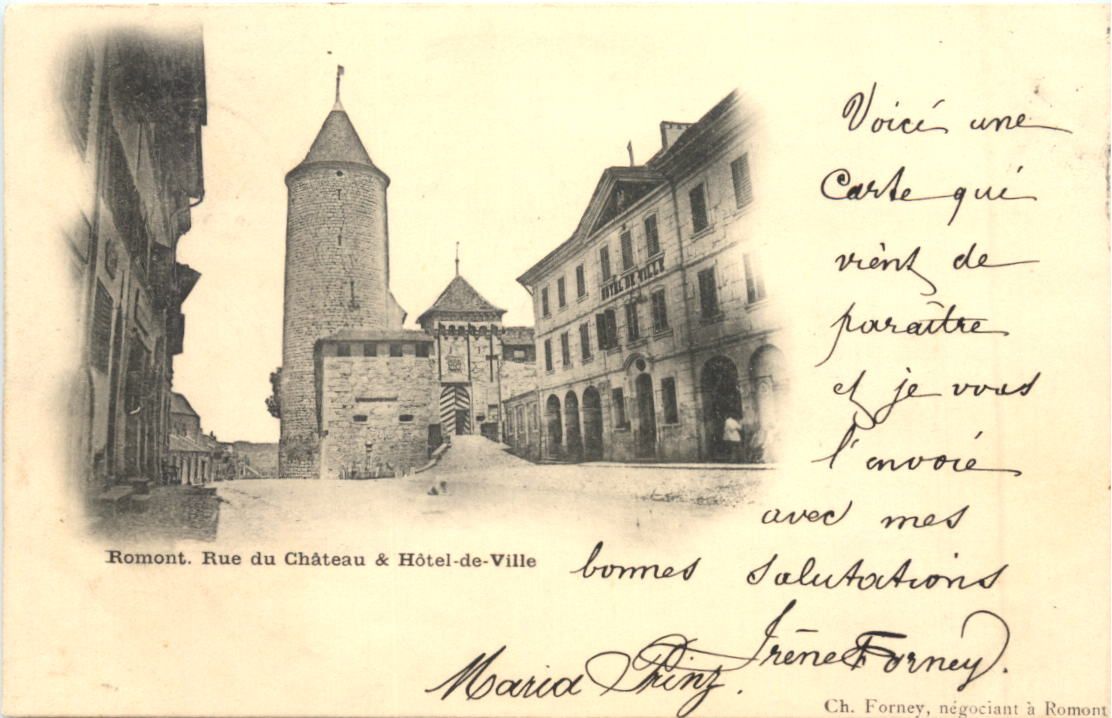 HÔTEL DE VILLE
Voici une
Carte qui
vient de
paraître
et je vous
l'envoie
avec mes
bonnes salutations
Irène Forney.
Maria Prinz.
Romont. Rue du Château & Hôtel-de-Ville
Ch. Forney, négociant à Romont